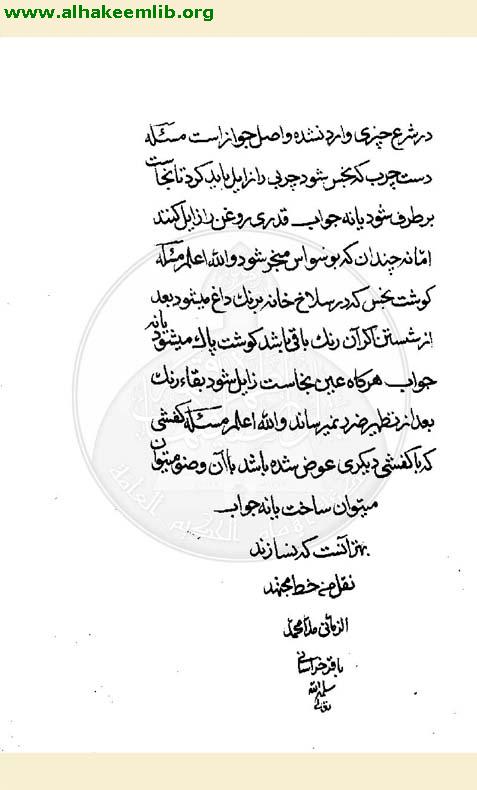 www.alhakeemlib.org
در شرع چیزی وارد نشده و اصل جواز است مسئله
دست چرب که نجس شود چربی را زایل باید کرد تا نجاست
بر طرف شود یا نه جواب قدری روغن را زایل کنند
امّا نه چندان که بوسواس منجر شود والله اعلم مسئله
گوشت نجس که در سلاخ خانه برنك داغ میشود بعد
از شستن اگر آن رنك باقی باشد گوشت پاك میشود یا نه
جواب هرگاه عین نجاست زایل شود بقاء رنك
بعد از تطهیر ضرر نمیرساند والله اعلم مسئله کفشی
که با کفشی دیگری عوض شده باشد با آن وضو میتوان
میتوان ساخت یا نه جواب
بهتر آنست که نسازند
نقل من خط مجتهد
الزمانی ملا محمد
باقر خراسانی
سلمه الله